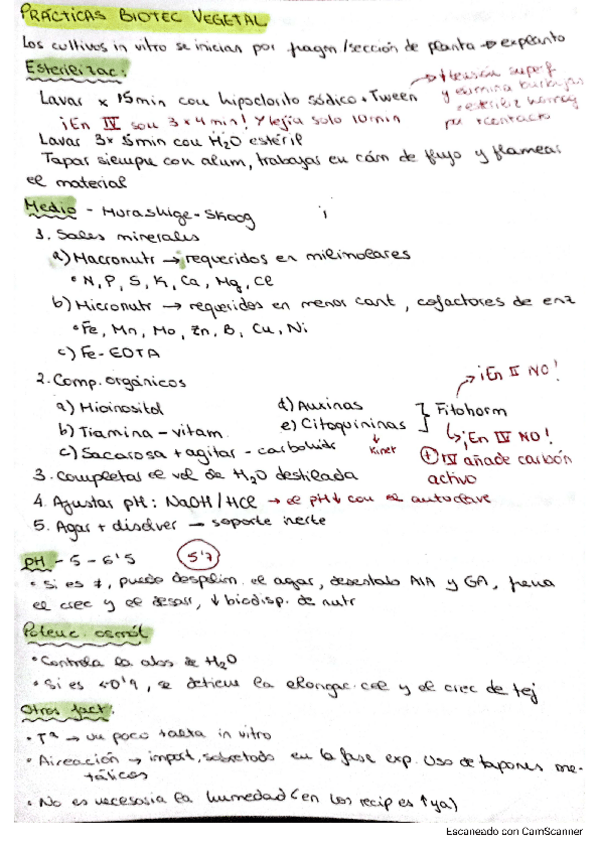 PRÁCTICAS BIOTEC VEGETAL
Los cultivos in vitro se inician por fragm/sección de planta → explanto
Esterilizac:
↓ tensión superf
Lavar x 15min con hipoclorito sódico + Tween
y elimina burbujas
¡En IV son 3 x 4 min! Y lejía solo 10min
+ contacto
Lavar 3x 5min con H2O estéril
Tapar siempre con alum, trabajar en cám de flujo y flamear
el material
Medio - Murashige-Skoog
1. Sales minerales
a) Macronutr → requeridos en milimolares
• N, P, S, K, Ca, Mg, Cl
b) Micronutr → requeridos en menor cant, cofactores de enz
• Fe, Mn, Mo, Zn, B, Cu, Ni
c) Fe-EDTA
¡En II NO!
2. Comp. orgánicos
a) Mioinositol d) Auxinas } Fitohorm
b) Tiamina - vitam e) Citoquininas
¡En IV NO!
c) Sacarosa + agitar - carbohidr
Kinet
⊕ IV añade carbón
activo
3. Completar el vol de H2O destilada
4. Ajustar pH: NaOH/HCl → el pH↓ con el autoclave
5. Agar + disolver → soporte inerte
pH - 5 - 6'5 5'7
• Si es ≠, puede despolim. el agar, desestab AIA y GA, frena
el crec y el desarr, ↓ biodisp. de nutr
Potenc. osmót
• Controla la abs de H2O
• Si es <-0'9, se detiene la elongac. cel y el crec de tej
Otros fact:
• Tª → un poco + alta in vitro
• Aireación → import, sobretodo en la fase exp. Uso de tapones me-
tálicos
• No es necesaria la humedad (en los recip es ↑ ya)
Escaneado con CamScanner